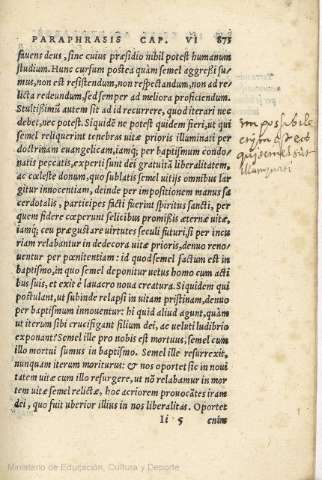 PARAPHRASIS CAP. VI 875
siuens deus, sine cuius præsidio nihil potest humanum
studium. Hunc cursum postea quàm semel aggreßi su-
mus, non est resistendum, non respectandum, non ad re-
licta redeundum, sed semper ad meliora proficiendum.
Stultißimũ autem sit ad id recurrere, quod iterari nec
debet, nec potest. Siquidē ne potest quidem fieri, ut qui
semel reliquerint tenebras uitæ prioris illuminati per
doctrinam euangelicam, iamq; per baptismum condo-
natis peccatis, experti sunt dei gratuitã liberalitatem,
ac cœleste donum, quo sublatis semel uitijs omnibus lar
gitur innocentiam, deinde per impositionem manus sa
cerdotalis, participes ficti fuerint spiritus sancti, per
quem fidere cœperunt felicibus promißis æternæ uitæ,
iamq; ceu prægustare uirtutes seculi futuri, si per incu
riam relabantur in dedecora uitæ prioris, denuo reno/
uentur per pœnitentiam: id quod semel factum est in
baptismo, in quo semel deponitur uetus homo cum acti
bus suis, et exit è lauacro noua creatura. Siquidem qui
postulant, ut subinde relapsi in uitam pristinam, denuo
per baptismum innouentur: hi quid aliud agunt, quàm
ut iterum sibi crucifigant filium dei, ac ueluti ludibrio
exponant? Semel ille pro nobis est mortuus, semel cum
illo mortui sumus in baptismo. Semel ille resurrexit,
nunquam iterum moriturus: & nos oportet sic in noui
tatem uitæ cum illo resurgere, ut nõ relabamur in mor
tem uitæ semel relictæ, hoc acriorem prouocãtes iram
dei, quo fuit uberior illius in nos liberalitas. Oportet
Ii 5 enim
impossibile
enim est eos
qui semel sunt
illuminati
Ministerio de Educación, Cultura y Deporte